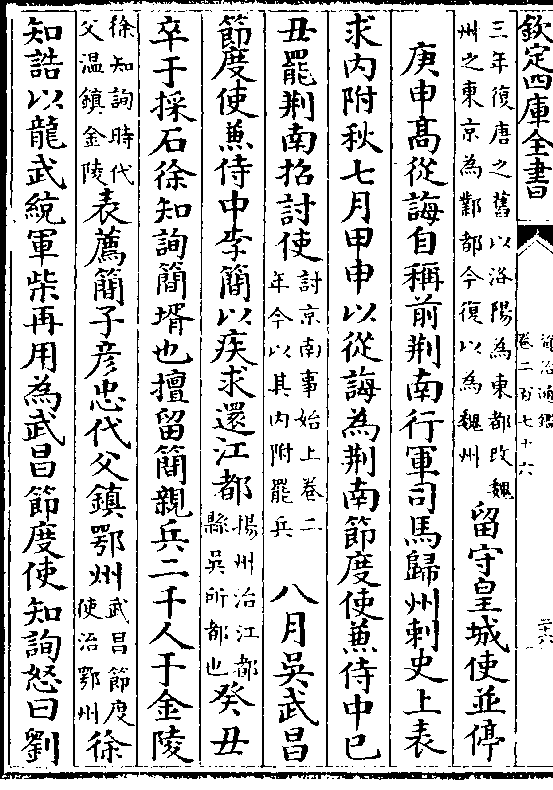 欽定四庫全書
資治通鑑
卷二百七十六
三十六
三年復唐之舊以洛陽為東都改魏
州之東京為鄴都今復以為魏州
留守皇城使並停
庚申高從誨自稱前荆南行軍司馬歸州刺史上表
求内附秋七月甲申以從誨為荆南節度使兼侍中已
丑罷荆南招討使
討京南事始上卷二
年今以其内附罷兵
八月吳武昌
節度使兼侍中李簡以疾求還江都
揚州治江都
縣吳所都也
癸丑
卒于採石徐知詢簡壻也擅留簡親兵二千人于金陵
徐知詢時代
父温鎮金陵
表薦簡子彦忠代父鎮鄂州
武昌節度
使治鄂州
徐
知誥以龍武統軍柴再用為武昌節度使知詢怒曰劉